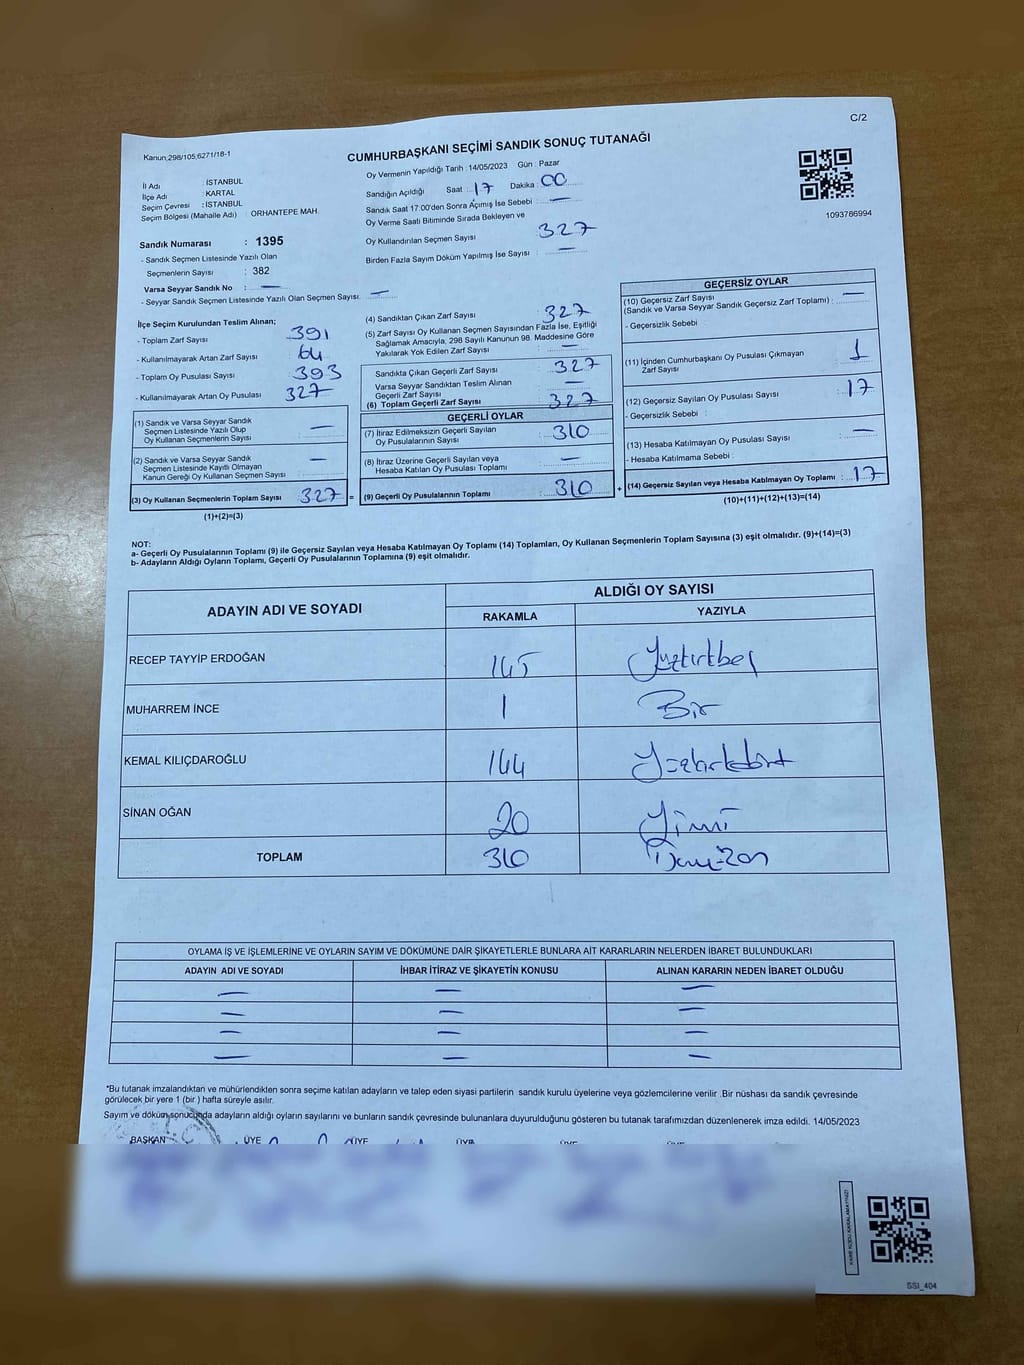 C/2
Kanun;298/105;6271/18-1
CUMHURBAŞKANI SEÇİMİ SANDIK SONUÇ TUTANAĞI
Oy Vermenin Yapıldığı Tarih : 14/05/2023 Gün : Pazar
İl Adı : İSTANBUL
İlçe Adı : KARTAL
Seçim Çevresi : İSTANBUL
Seçim Bölgesi (Mahalle Adı) : ORHANTEPE MAH.
Sandığın Açıldığı Saat : 17 Dakika : 00
Sandık Saat 17:00'den Sonra Açımış İse Sebebi : —
Oy Verme Saati Bitiminde Sırada Bekleyen ve
Oy Kullandırılan Seçmen Sayısı : 327
Birden Fazla Sayım Döküm Yapılmış İse Sayısı : —
1093786994
Sandık Numarası : 1395
- Sandık Seçmen Listesinde Yazılı Olan
Seçmenlerin Sayısı : 382
Varsa Seyyar Sandık No : —
- Seyyar Sandık Seçmen Listesinde Yazılı Olan Seçmen Sayısı: —
İlçe Seçim Kurulundan Teslim Alınan;
- Toplam Zarf Sayısı : 391
- Kullanılmayarak Artan Zarf Sayısı : 64
- Toplam Oy Pusulası Sayısı : 393
- Kullanılmayarak Artan Oy Pusulası : 327
(1) Sandık ve Varsa Seyyar Sandık
Seçmen Listesinde Yazılı Olup
Oy Kullanan Seçmenlerin Sayısı : —
(2) Sandık ve Varsa Seyyar Sandık
Seçmen Listesinde Kayıtlı Olmayan
Kanun Gereği Oy Kullanan Seçmen Sayısı : —
(3) Oy Kullanan Seçmenlerin Toplam Sayısı : 327 =
(1)+(2)=(3)
(4) Sandıktan Çıkan Zarf Sayısı : 327
(5) Zarf Sayısı Oy Kullanan Seçmen Sayısından Fazla İse, Eşitliği
Sağlamak Amacıyla, 298 Sayılı Kanunun 98. Maddesine Göre
Yakılarak Yok Edilen Zarf Sayısı : —
Sandıkta Çıkan Geçerli Zarf Sayısı : 327
Varsa Seyyar Sandıktan Teslim Alınan
Geçerli Zarf Sayısı : —
(6) Toplam Geçerli Zarf Sayısı : 327
GEÇERLİ OYLAR
(7) İtiraz Edilmeksizin Geçerli Sayılan
Oy Pusulalarının Sayısı : 310
(8) İtiraz Üzerine Geçerli Sayılan veya
Hesaba Katılan Oy Pusulası Toplamı : —
(9) Geçerli Oy Pusulalarının Toplamı : 310 +
GEÇERSİZ OYLAR
(10) Geçersiz Zarf Sayısı
(Sandık ve Varsa Seyyar Sandık Geçersiz Zarf Toplamı) : —
- Geçersizlik Sebebi :
(11) İçinden Cumhurbaşkanı Oy Pusulası Çıkmayan
Zarf Sayısı : 1
(12) Geçersiz Sayılan Oy Pusulası Sayısı : 17
- Geçersizlik Sebebi :
(13) Hesaba Katılmayan Oy Pusulası Sayısı : —
- Hesaba Katılmama Sebebi :
(14) Geçersiz Sayılan veya Hesaba Katılmayan Oy Toplamı : 17
(10)+(11)+(12)+(13)=(14)
NOT:
a- Geçerli Oy Pusulalarının Toplamı (9) ile Geçersiz Sayılan veya Hesaba Katılmayan Oy Toplamı (14) Toplamları, Oy Kullanan Seçmenlerin Toplam Sayısına (3) eşit olmalıdır. (9)+(14)=(3)
b- Adayların Aldığı Oyların Toplamı, Geçerli Oy Pusulalarının Toplamına (9) eşit olmalıdır.
ADAYIN ADI VE SOYADI ALDIĞI OY SAYISI
RAKAMLA YAZIYLA
RECEP TAYYİP ERDOĞAN 145 Yüzkırkbeş
MUHARREM İNCE 1 Bir
KEMAL KILIÇDAROĞLU 144 Yüzkırkdört
SİNAN OĞAN 20 Yirmi
TOPLAM 310
OYLAMA İŞ VE İŞLEMLERİNE VE OYLARIN SAYIM VE DÖKÜMÜNE DAİR ŞİKAYETLERLE BUNLARA AİT KARARLARIN NELERDEN İBARET BULUNDUKLARI
ADAYIN ADI VE SOYADI İHBAR İTİRAZ VE ŞİKAYETİN KONUSU ALINAN KARARIN NEDEN İBARET OLDUĞU
— — —
— — —
— — —
— — —
*Bu tutanak imzalandıktan ve mühürlendikten sonra seçime katılan adayların ve talep eden siyasi partilerin sandık kurulu üyelerine veya gözlemcilerine verilir .Bir nüshası da sandık çevresinde
görülecek bir yere 1 (bir ) hafta süreyle asılır.
Sayım ve döküm sonucunda adayların aldığı oyların sayılarını ve bunların sandık çevresinde bulunanlara duyurulduğunu gösteren bu tutanak tarafımızdan düzenlenerek imza edildi. 14/05/2023
BAŞKAN ÜYE ÜYE ÜYE
KARE KODU KARALAMAYINIZ!
SSI_404